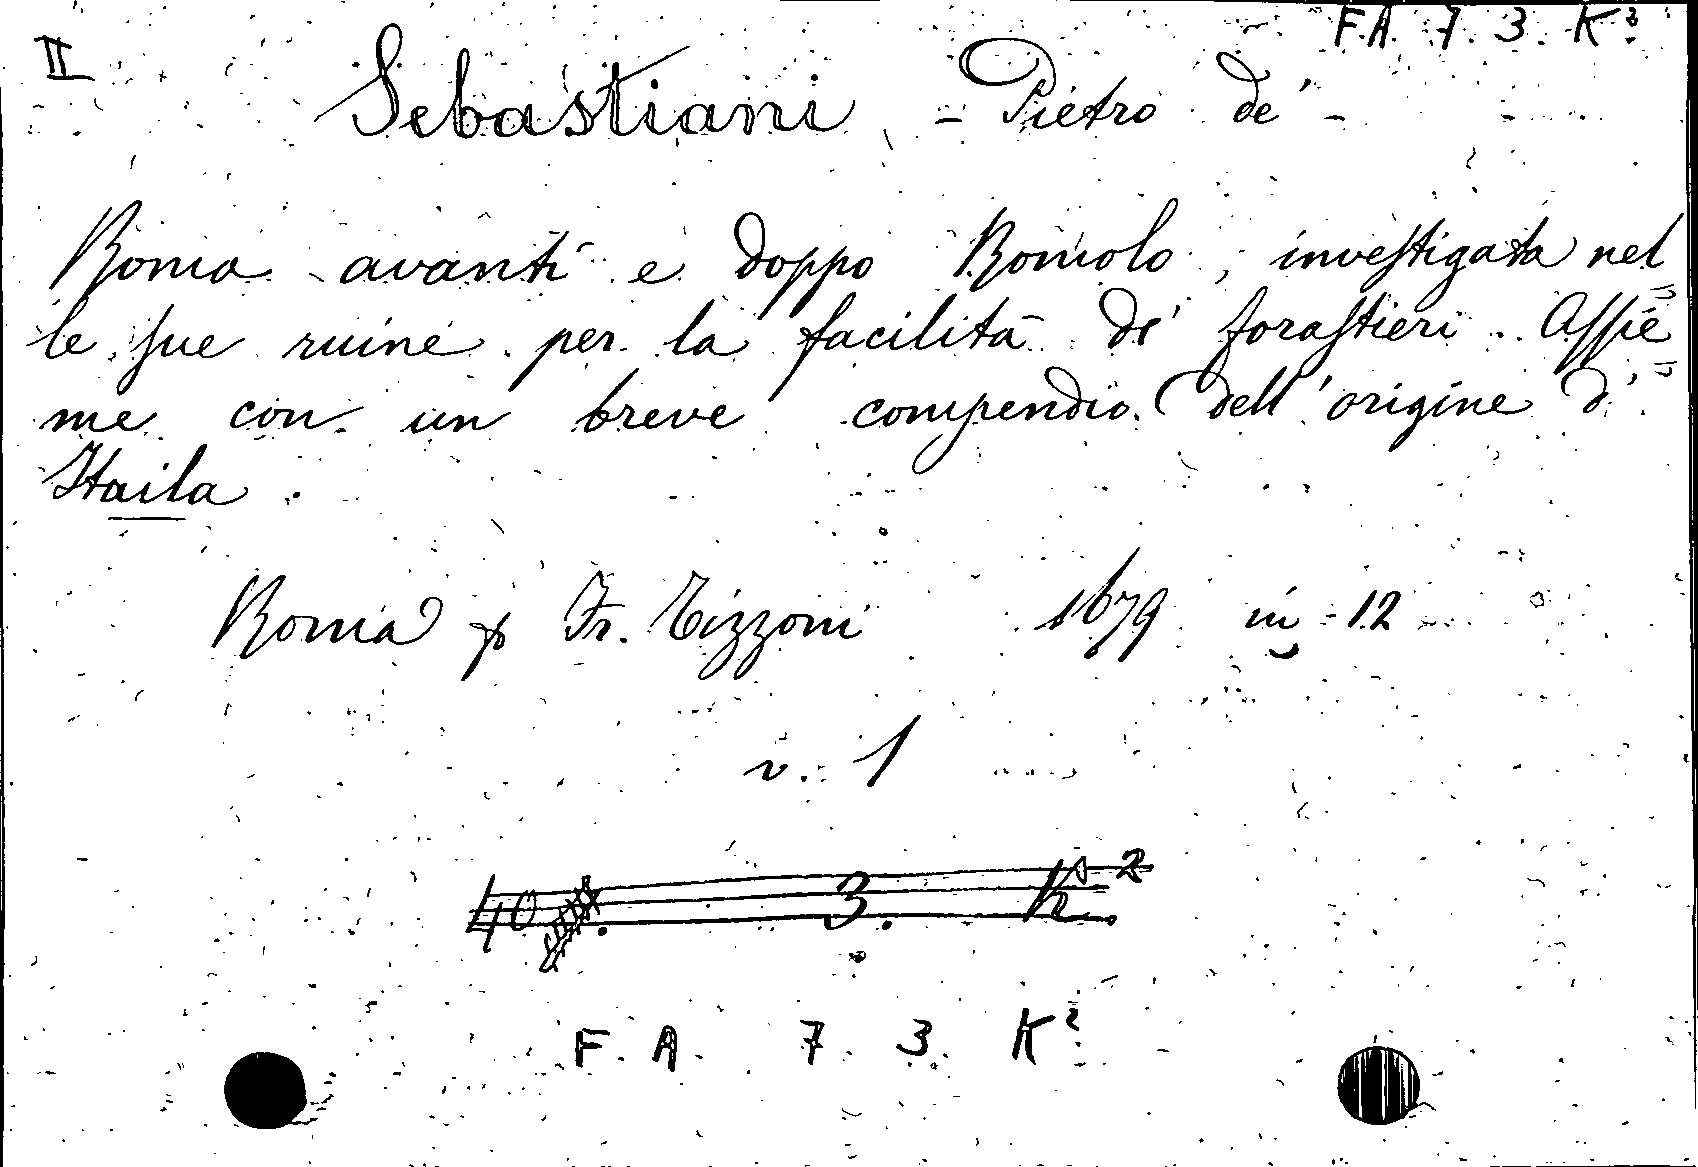 II F.A. 7. 3. K²
Sebastiani - Pietro de' -
Roma avanti e doppo Romolo, investigata nel=
le sue ruine per la facilità de' forastieri. Assie=
me con un breve compendio dell'origine d'
Itaila.
Roma p Fr. Tizzoni 1679 in 12
v. 1
40 . 3. K 2
F. A. 7. 3. K²